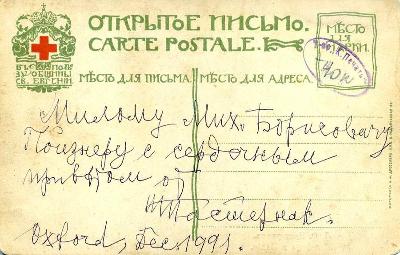 ОТКРЫТОЕ ПИСЬМО.
CARTE POSTALE.
МѢСТО
ДЛЯ
МАРКИ.
40к
ВЪ ПОЛЬЗУ
ОБЩИНЫ
СВ. ЕВГЕНІИ
МѢСТО ДЛЯ ПИСЬМА
МѢСТО ДЛЯ АДРЕСА.
Милому Мих. Борисовичу
Познеру с сердечным
приветом от
Пастернак.
Oxford, Дес. 1991.